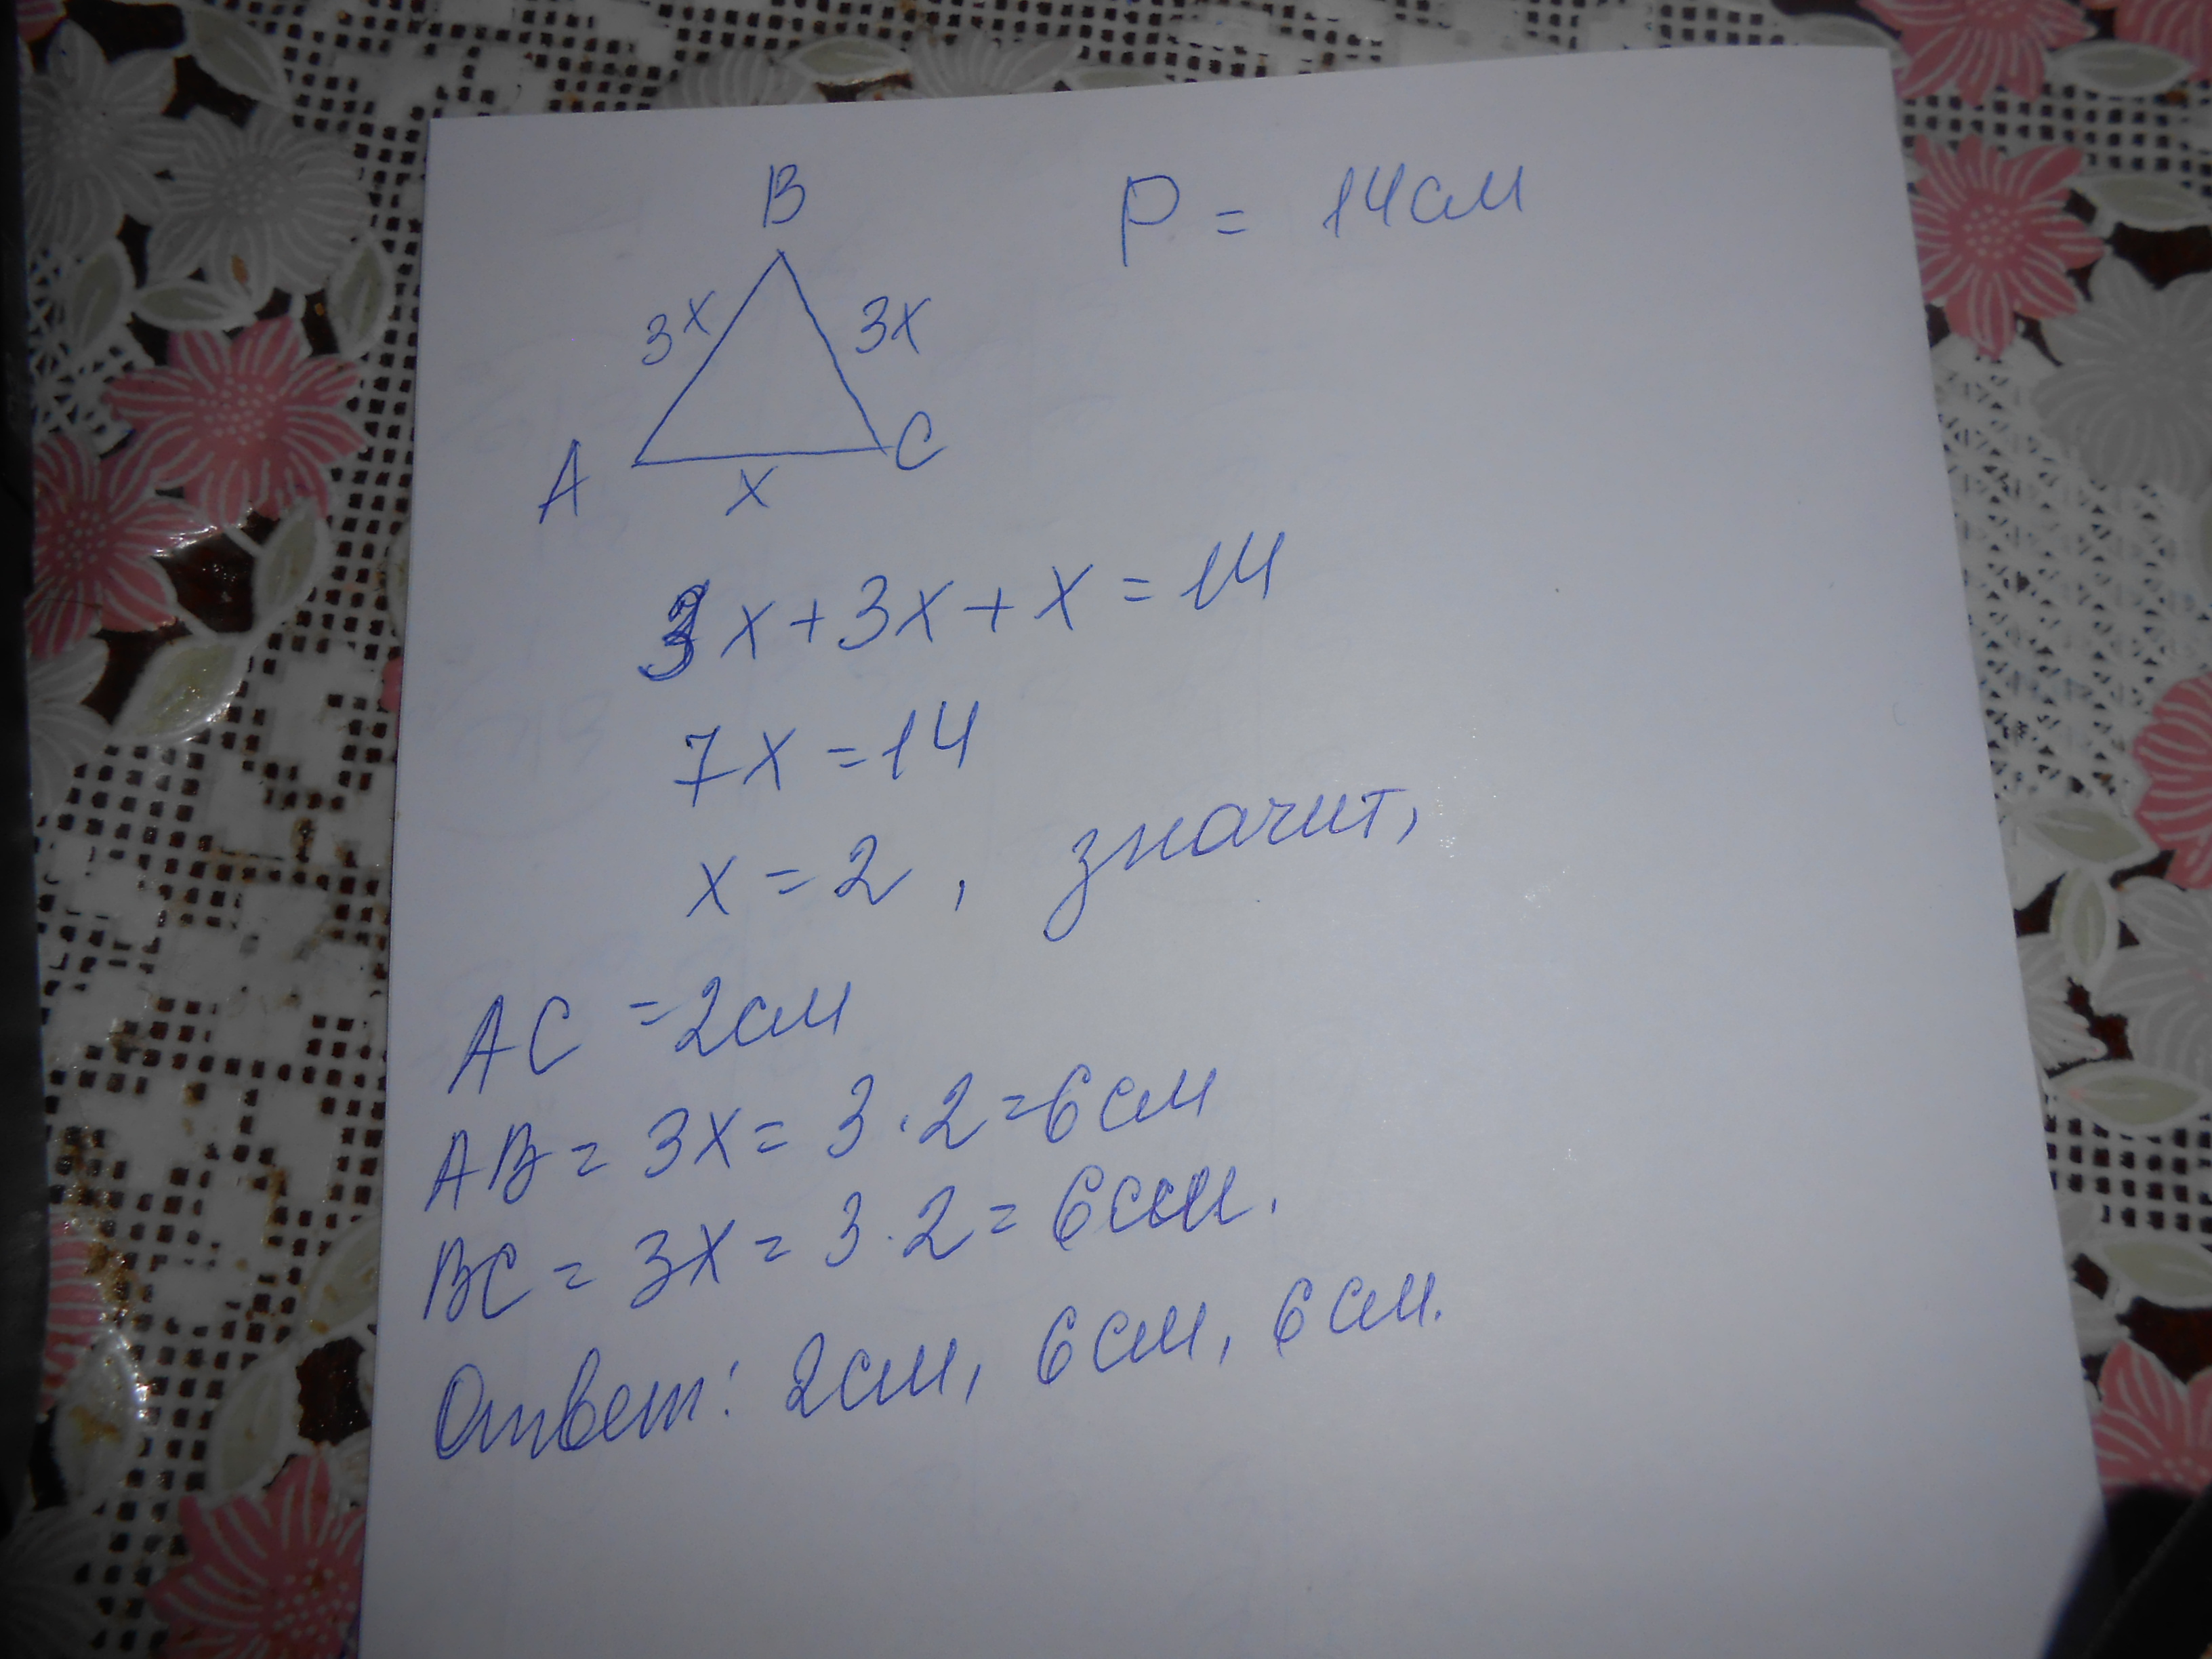 B
P = 14см
3x
3x
A
C
x
3x+3x+x=14
7x=14
x=2, значит,
AC =2см
AB= 3x= 3·2=6см
BC= 3x= 3·2= 6см.
Ответ: 2см, 6см, 6см.